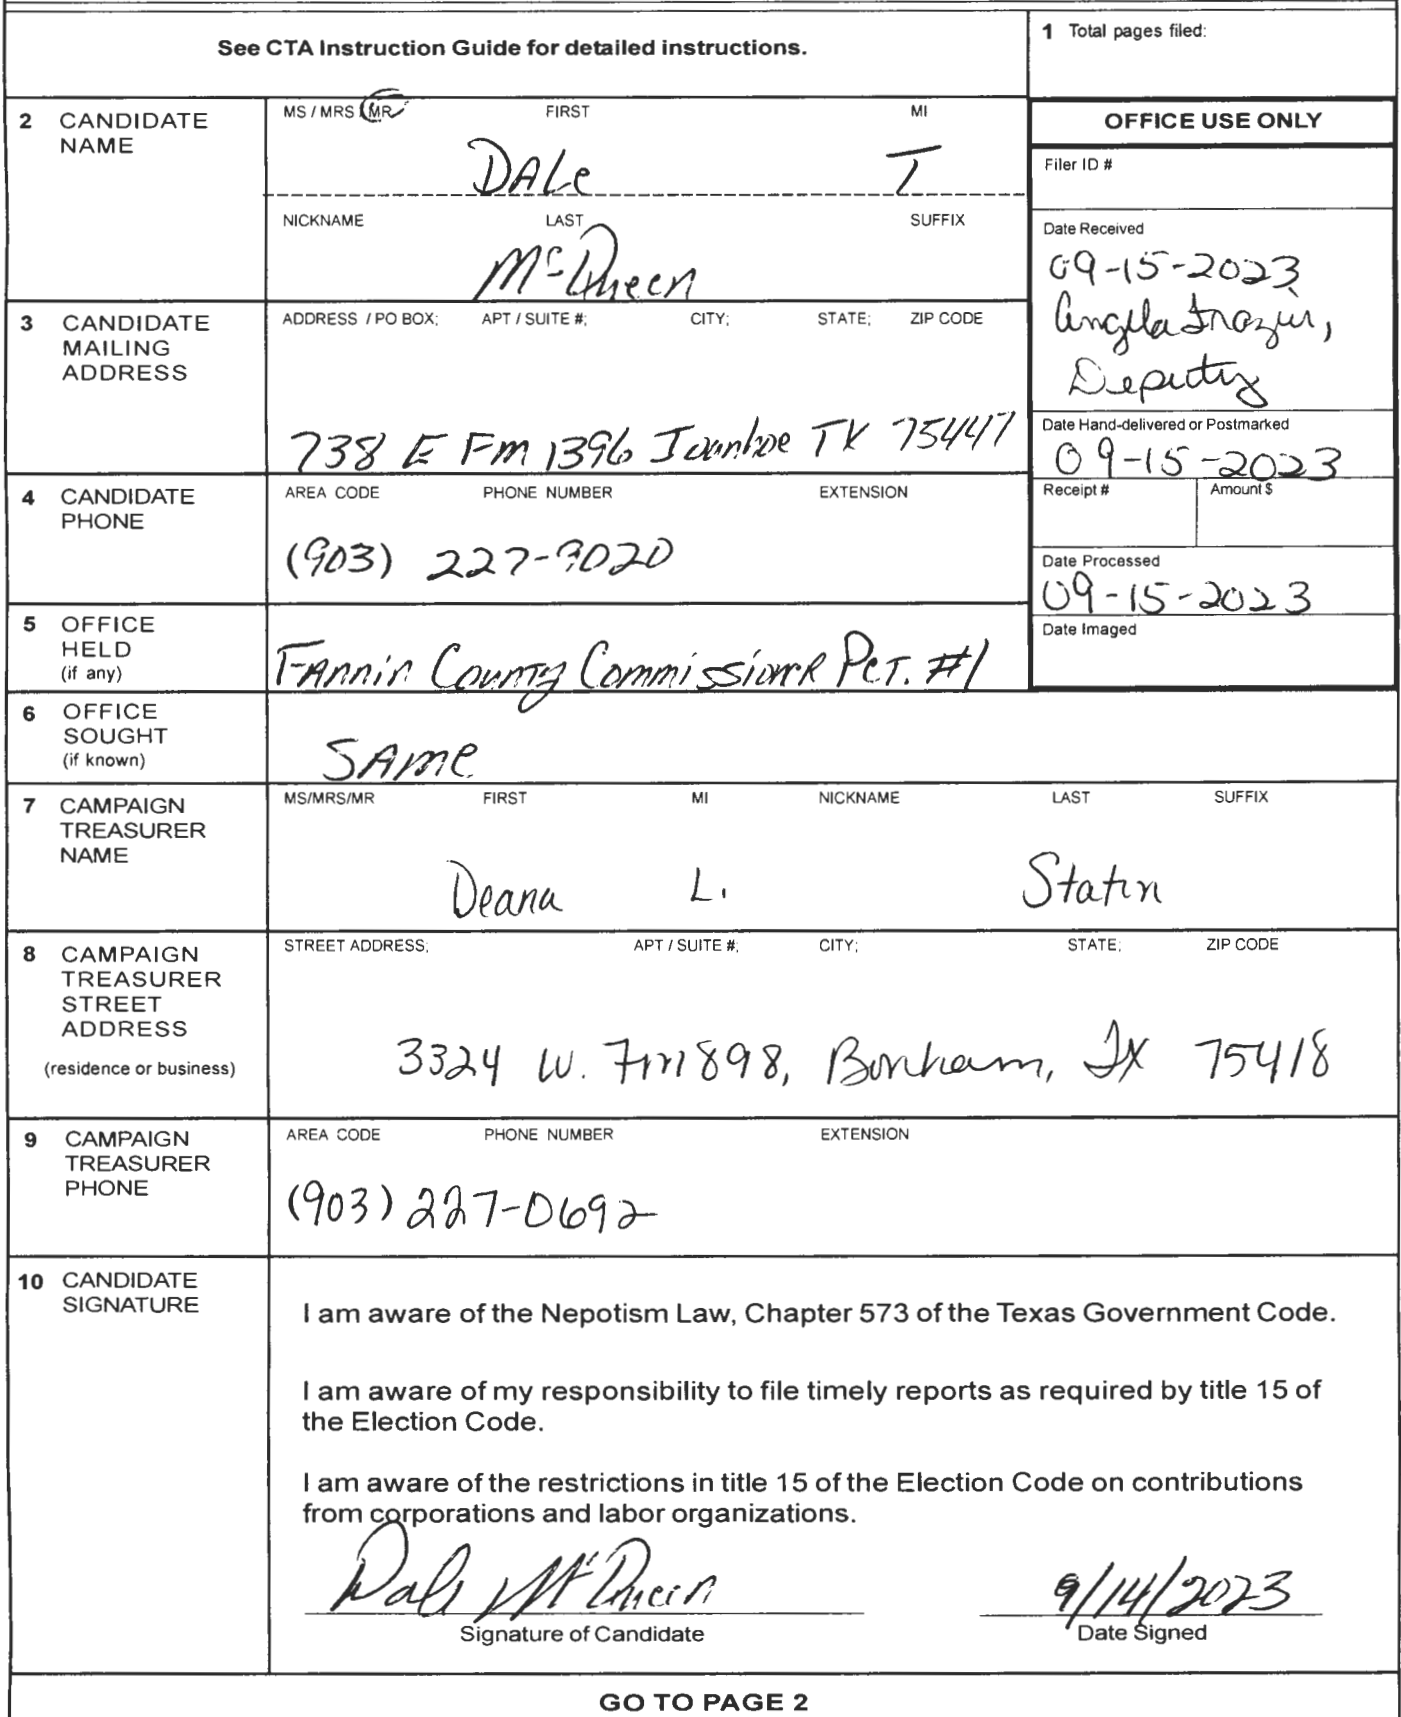 See CTA Instruction Guide for detailed instructions.
1 Total pages filed:
2 CANDIDATE NAME
MS / MRS / MR FIRST MI
DALe T
NICKNAME LAST SUFFIX
McQueen
OFFICE USE ONLY
Filer ID #
Date Received
09-15-2023
Angela Frazier,
Deputy
3 CANDIDATE MAILING ADDRESS
ADDRESS / PO BOX; APT / SUITE #; CITY; STATE; ZIP CODE
738 E Fm 1396 Ivanhoe TX 75447
Date Hand-delivered or Postmarked
09-15-2023
4 CANDIDATE PHONE
AREA CODE PHONE NUMBER EXTENSION
(903) 227-9020
Receipt # Amount $
Date Processed
09-15-2023
Date Imaged
5 OFFICE HELD (if any)
FAnnin County Commissioner PCT. #1
6 OFFICE SOUGHT (if known)
SAme
7 CAMPAIGN TREASURER NAME
MS/MRS/MR FIRST MI NICKNAME LAST SUFFIX
Deana L. Staton
8 CAMPAIGN TREASURER STREET ADDRESS
(residence or business)
STREET ADDRESS; APT / SUITE #; CITY; STATE; ZIP CODE
3324 W. FM 898, Bonham, Tx 75418
9 CAMPAIGN TREASURER PHONE
AREA CODE PHONE NUMBER EXTENSION
(903) 227-0692
10 CANDIDATE SIGNATURE
I am aware of the Nepotism Law, Chapter 573 of the Texas Government Code.
I am aware of my responsibility to file timely reports as required by title 15 of
the Election Code.
I am aware of the restrictions in title 15 of the Election Code on contributions
from corporations and labor organizations.
Dale McQueen 9/14/2023
Signature of Candidate Date Signed
GO TO PAGE 2